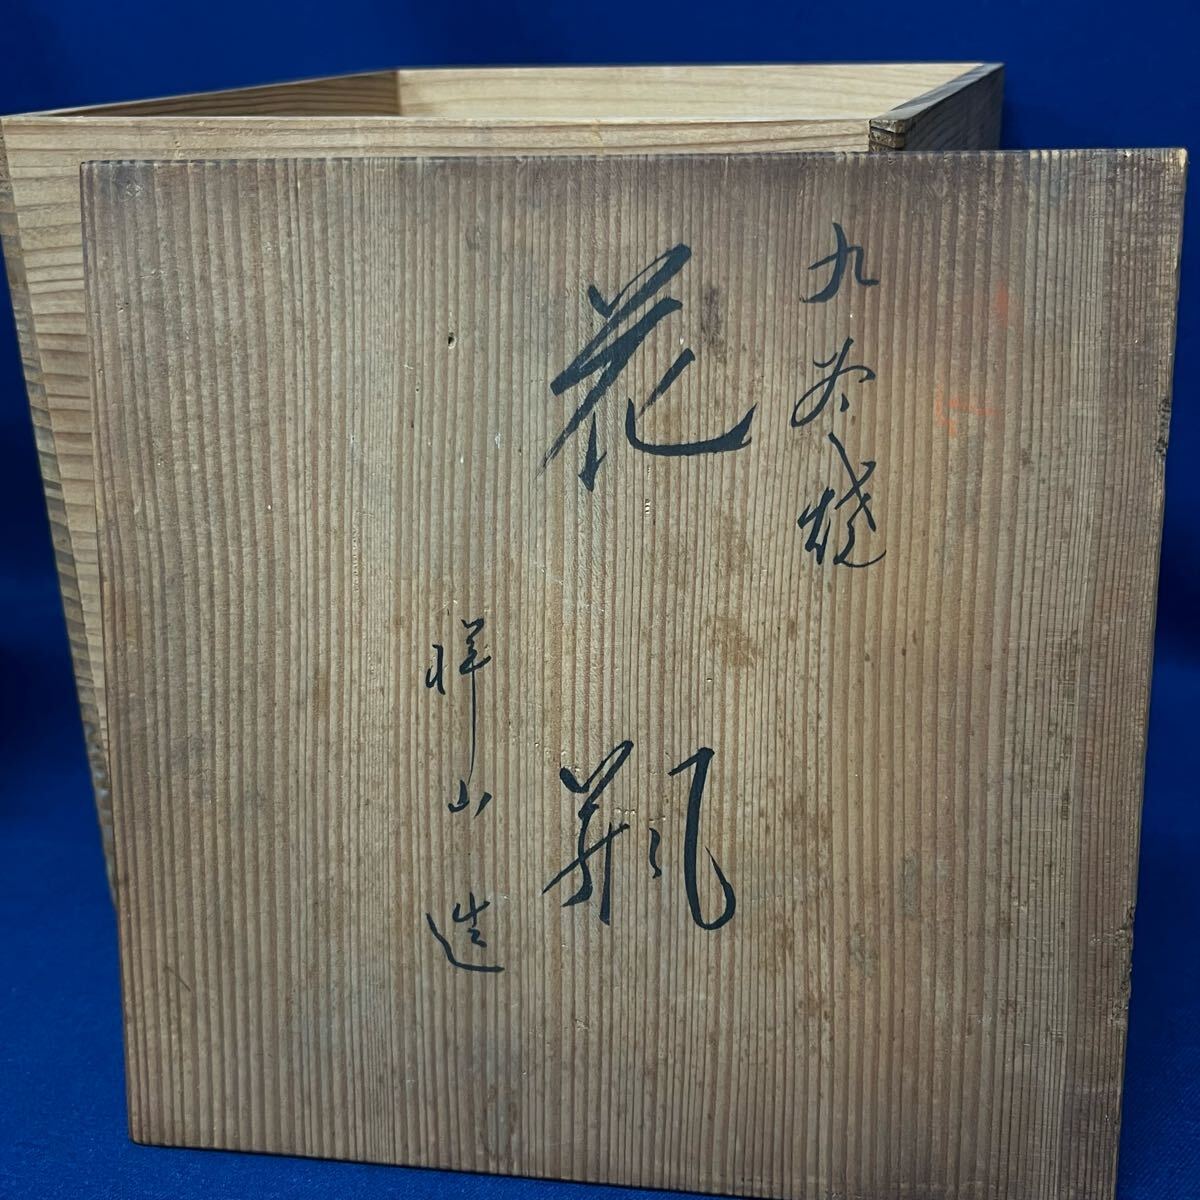 九谷焼
花瓶
祥山造